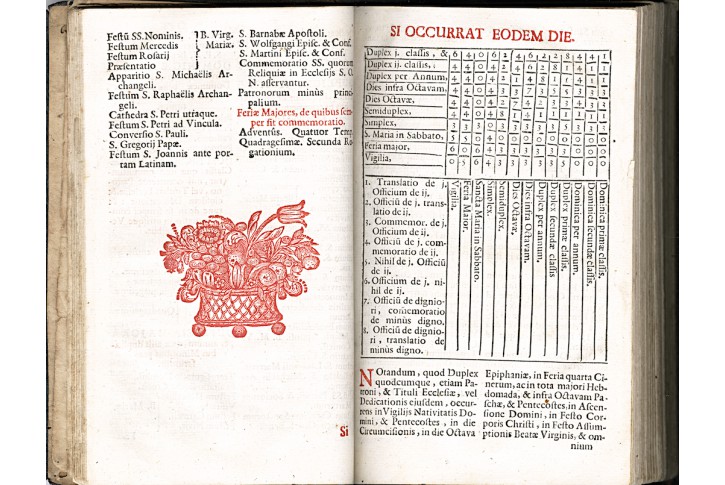 Festū SS. Nominis. } B. Virg.
Festum Mercedis } Mariæ.
Festum Rosarij
Præsentatio }
Apparitio S. Michaëlis Ar-
changeli.
Festum S. Raphaëlis Archan-
geli.
Cathedra S. Petri utraque.
Festum S. Petri ad Vincula.
Conversio S. Pauli.
S. Gregorij Papæ.
Festum S. Joannis ante por-
tam Latinam.
S. Barnabæ Apostoli.
S. Wolfgangi Episc. & Conf.
S. Martini Episc. & Conf.
Commemoratio SS. quorum
Reliquiæ in Ecclesijs S. O.
N. asservantur.
Patronorum minùs prin-
palium.
Feriæ Majores, de quibus sem-
per fit commemoratio.
Adventûs. Quatuor Temp.
Quadragesimæ. Secunda Ro-
gationium.
Si
SI OCCURRAT EODEM DIE.
Duplex j. classis, &
Duplex ij. classis,
Duplex per Annum,
Dies infra Octavam,
Dies Octavæ,
Semiduplex,
Simplex,
S. Maria in Sabbato,
Feria major,
Vigilia,
1. Translatio de j.
Officium de ij.
2. Officiū de j. trans-
latio de ij.
3. Commemor. de j.
Officium de ij.
4. Officiū de j. com-
memoratio de ij.
5. Nihil de j. Officiū
de ij.
6. Officium de j. ni-
hil de ij.
7. Officiū de dignio-
ri, comemoratio
de minùs digno.
8. Officiū de dignio-
ri, translatio de
minùs digno.
Vigilia.
Feria Major.
Sancta Maria in Sabbato.
Simplex.
Semiduplex.
Dies Octava.
Dies infra Octavam.
Duplex per annum.
Duplex secundæ classis
Duplex primæ classis.
Dominica per annum.
Dominica secundæ classis.
Dominica primæ classis.
NOtandum, quod Duplex
quodcumque, etiam Pa-
troni, & Tituli Ecclesiæ, vel
Dedicationis ejusdem, occur-
rens in Vigilijs Nativitatis Do-
mini, & Pentecostes, in die
Circumcisionis, in die Octava
Epiphaniæ, in Feria quarta Ci-
nerum, ac in tota majori Heb-
domada, & infra Octavam Pa-
schæ, & Pentecostes, in Ascen-
sione Domini, in Festo Cor-
poris Christi, in Festo Assum-
ptionis Beatæ Virginis, & om-
nium